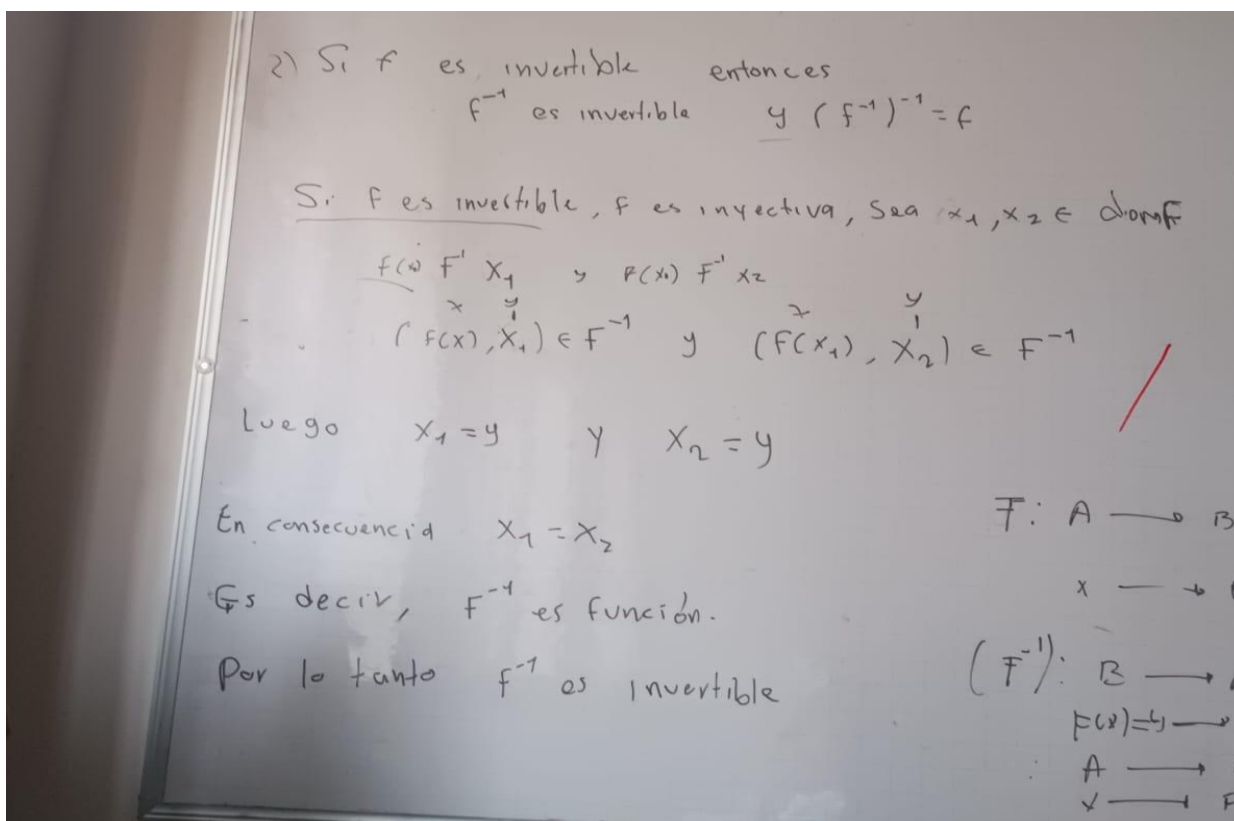 2) Si f es invertible entonces
f⁻¹ es invertible y (f⁻¹)⁻¹ = f
Si f es invertible, f es inyectiva, Sea x₁, x₂ ∈ domF
f(x) F⁻¹ X₁ y F(x₁) F⁻¹ x₂
x y x y
(F(x), X₁) ∈ F⁻¹ y (F(x₁), X₂) ∈ F⁻¹
Luego X₁ = y Y X₂ = y
En consecuencia X₁ = X₂
Es decir, F⁻¹ es función.
Por lo tanto f⁻¹ es invertible
F: A → B
x →
(F⁻¹): B →
F(x)=y →
A →
x →